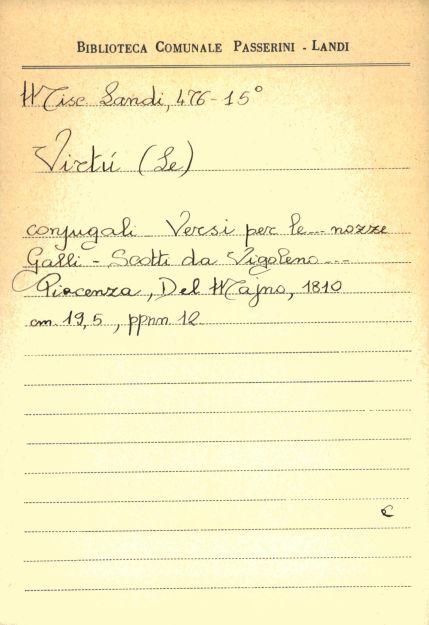 BIBLIOTECA COMUNALE PASSERINI - LANDI
Misc. Landi, 476-15°
Virtú (Le)
conjugali. Versi per le... nozze
Galli - Scotti da Vigoleno...
Piacenza, Del Majno, 1810
cm. 19,5, ppnn 12
C